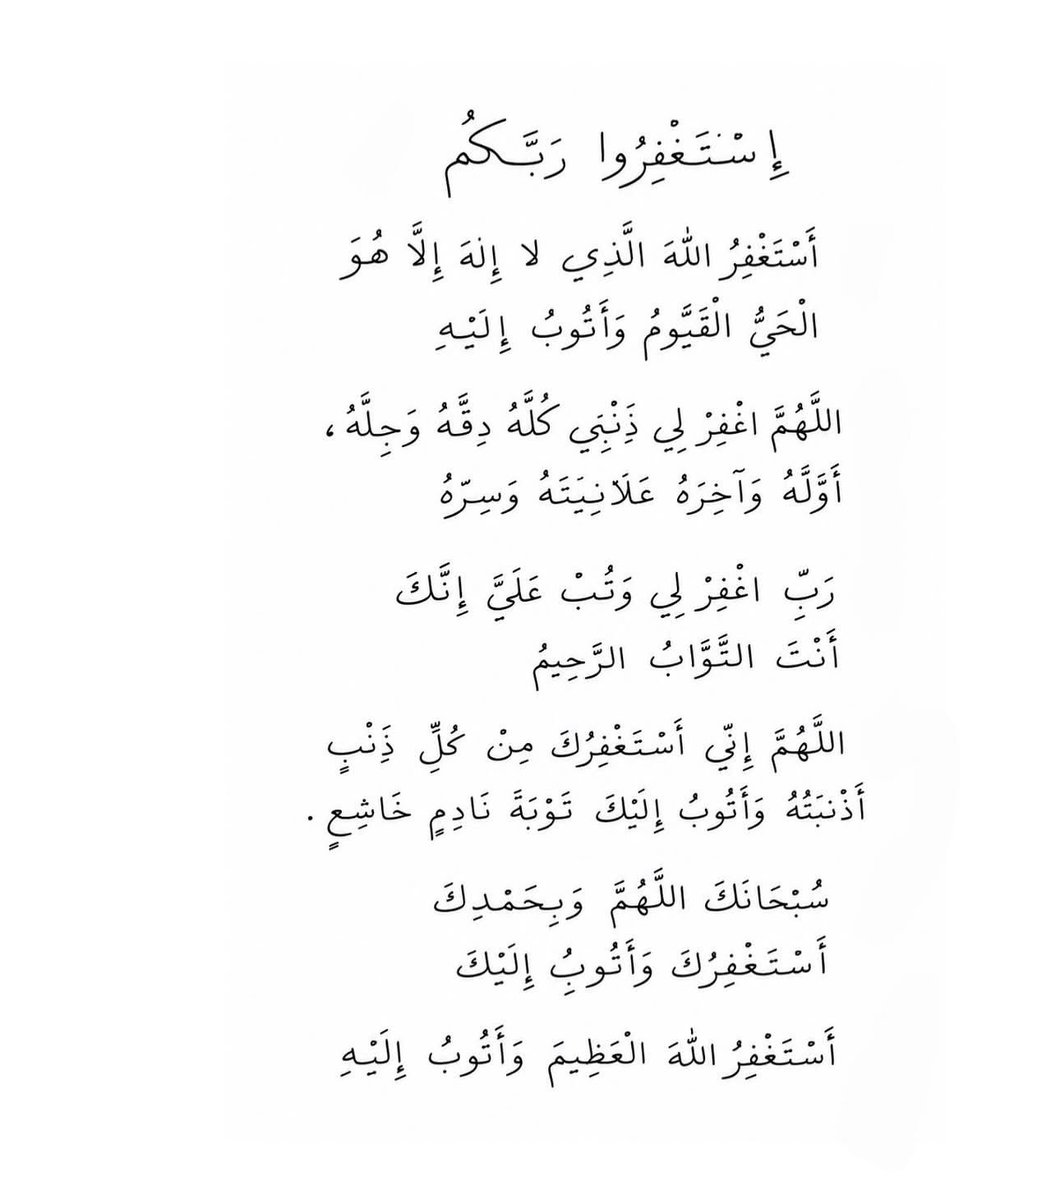 إِسْتَغْفِرُوا رَبَّكُم
أَسْتَغْفِرُ اللهَ الَّذِي لا إِلهَ إِلَّا هُوَ
الْحَيُّ الْقَيَّومُ وَأَتُوبُ إِلَيْهِ
اللَّهُمَّ اغْفِرْ لِي ذَِنْبَِي كُلَّهُ دِقَّهُ وَجِلَّهُ ،
أَوَّلَّهُ وَآخِرَهُ عَلَانِيَتَهُ وَسِرّهُ
رَبِّ اغْفِرْ لِي وَتُبْ عَلَيَّ إِنَّكَ
أَنْتَ التَّوَّابُ الرَّحِيمُ
اللَّهُمَّ إِنّي أَسْتَغْفِرُكَ مِنْ كُلِّ ذَِنْبٍ
أَذْنبَتُهُ وَأَتُوبُ إِلَيْكَ تَوْبَةَ نَادِمٍ خَاشِعٍ .
سُبْحَانَكَ اللَّهُمَّ وَبِحَمْدِكَ
أَسْتَغْفِرُكَ وَأَتُوبُِ إِلَيْكَ
أَسْتَغْفِرُ اللهَ الْعَظِيمَ وَأَتُوبُ إِلَيْهِ